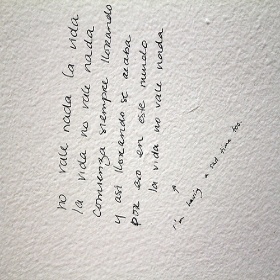 no vale nada la vida
la vida no vale nada
comienza siempre llorando
y así llorando se acaba
por eso en este mundo
la vida no vale nada
i'm having a bad time too.